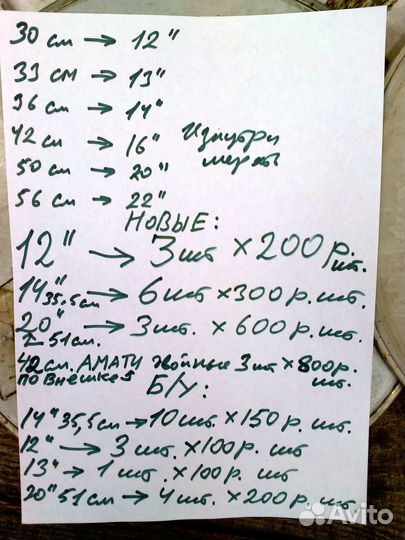 30 см → 12"
33 см → 13"
36 см → 14"
42 см → 16" Изнутри
50 см → 20" мерять
56 см → 22"
НОВЫЕ:
12" → 3 шт × 200 р. шт.
14" 35,5 см → 6 шт × 300 р. шт.
20" 51 см. → 3 шт. × 600 р. шт.
42 см. АМАТИ двойные 3 шт × 800 р. шт.
по внешке ↑
Б/У:
14" 35,5 см → 10 шт. × 150 р. шт.
12" → 3 шт. × 100 р. шт
13" → 1 шт. × 100 р. шт
20" 51 см → 4 шт. × 200 р. шт.
Avito